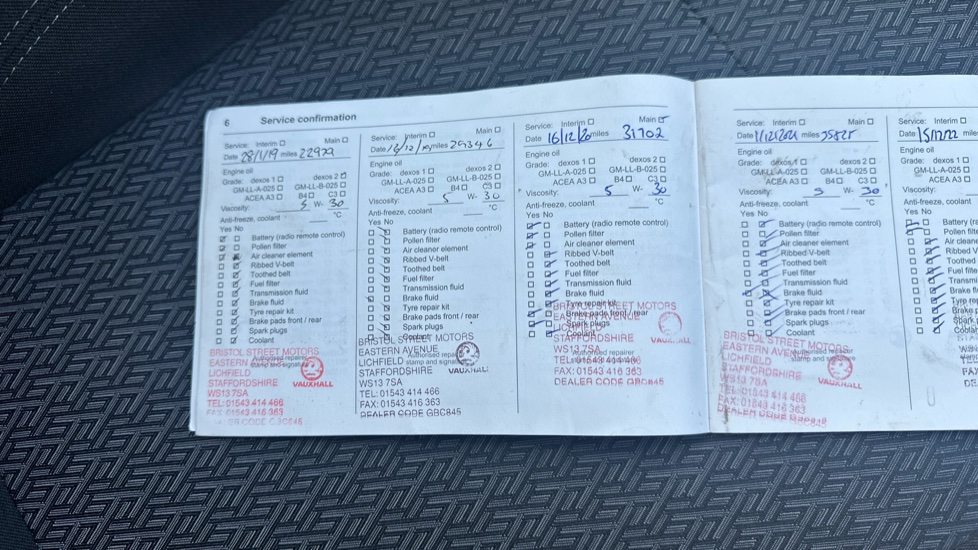 6 Service confirmation
Service: Interim ☐ Main ☐
Date 28/1/19 miles 22929
Engine oil
Grade: dexos 1 ☐ dexos 2 ☑
GM-LL-A-025 ☐ GM-LL-B-025 ☐
ACEA A3 ☐ B4 ☐ C3 ☐
Viscosity: 5 W- 30
Anti-freeze, coolant °C
Yes No
Battery (radio remote control)
Pollen filter
Air cleaner element
Ribbed V-belt
Toothed belt
Fuel filter
Transmission fluid
Brake fluid
Tyre repair kit
Brake pads front / rear
Spark plugs
Coolant
BRISTOL STREET MOTORS
EASTERN
LICHFIELD
STAFFORDSHIRE VAUXHALL
WS13 7SA
TEL: 01543 414 466
FAX: 01543 416 363
Service: Interim ☐ Main ☐
Date miles 29346
Engine oil
Grade: dexos 1 ☐ dexos 2 ☐
GM-LL-A-025 ☐ GM-LL-B-025 ☐
ACEA A3 ☐ B4 ☐ C3 ☐
Viscosity: 5 W- 30
Anti-freeze, coolant °C
Yes No
Battery (radio remote control)
Pollen filter
Air cleaner element
Ribbed V-belt
Toothed belt
Fuel filter
Transmission fluid
Brake fluid
Tyre repair kit
Brake pads front / rear
Spark plugs
BRISTOL STREET MOTORS
EASTERN AVENUE
LICHFIELD
STAFFORDSHIRE VAUXHALL
WS13 7SA
TEL: 01543 414 466
FAX: 01543 416 363
DEALER CODE GBC845
Service: Interim ☐ Main ☑
Date 16/12/20 miles 31702
Engine oil
Grade: dexos 1 ☐ dexos 2 ☐
GM-LL-A-025 ☐ GM-LL-B-025 ☐
ACEA A3 ☐ B4 ☐ C3 ☐
Viscosity: 5 W- 30
Anti-freeze, coolant °C
Yes No
Battery (radio remote control)
Pollen filter
Air cleaner element
Ribbed V-belt
Toothed belt
Fuel filter
Transmission fluid
Brake fluid
Tyre repair kit
BRISTOL STREET MOTORS
Brake pads front / rear
EASTERN AVENUE
Spark plugs
LICHFIELD
STAFFORDSHIRE VAUXHALL
WS13 7SA
TEL: 01543 414 466
FAX: 01543 416 363
DEALER CODE GBC845
Service: Interim ☐ Main ☐
Date 1/12/2021 miles 35825
Engine oil
Grade: dexos 1 ☐ dexos 2 ☐
GM-LL-A-025 ☐ GM-LL-B-025 ☐
ACEA A3 ☐ B4 ☐ C3 ☐
Viscosity: 5 W- 30
Anti-freeze, coolant °C
Yes No
Battery (radio remote control)
Pollen filter
Air cleaner element
Ribbed V-belt
Toothed belt
Fuel filter
Transmission fluid
Brake fluid
Tyre repair kit
Brake pads front / rear
Spark plugs
Coolant
BRISTOL STREET MOTORS
EASTERN AVENUE
LICHFIELD
STAFFORDSHIRE
WS13 7SA VAUXHALL
TEL: 01543 414 466
FAX: 01543 416 363
DEALER CODE
Service: Interim ☐
Date
Engine oil
Grade: dexos 1 ☐
GM-LL-A-025 ☐
ACEA A3 ☐
Viscosity:
Anti-freeze, coolant
Yes No
Pollen
Air cle
Ribbed V
Toothed
Fuel filte
Transmis
Brake fl
Tyre
Brake
Spark